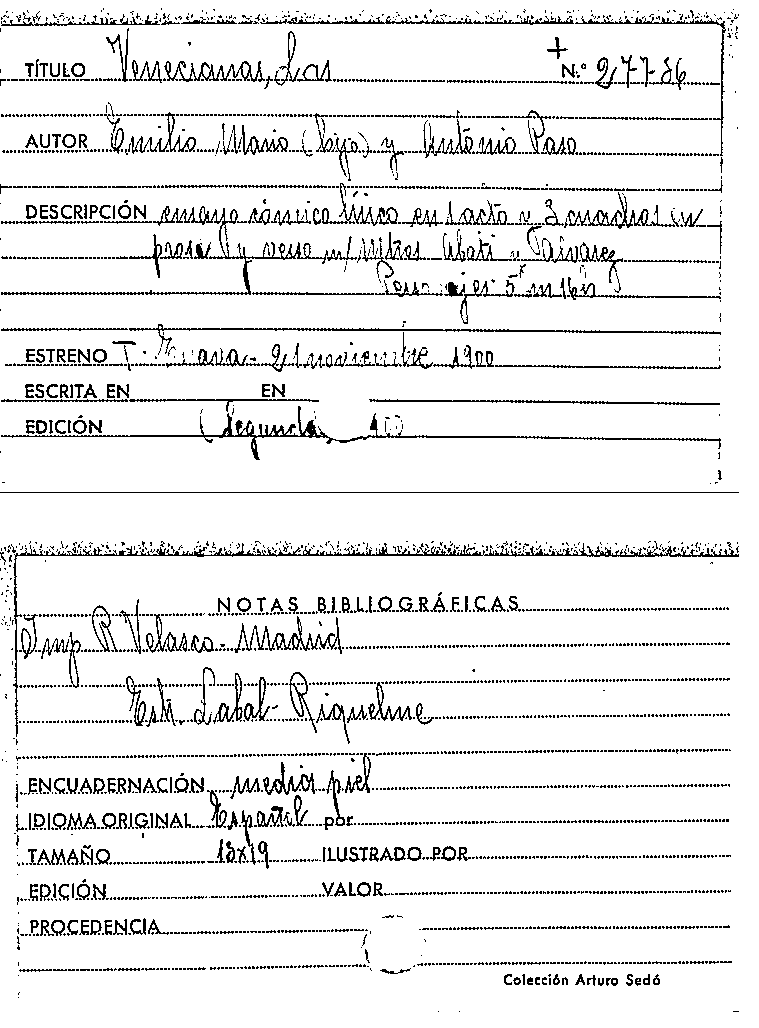 TÍTULO Venecianas, Las N.º 277-86
AUTOR Emilio Mario (hijo) y Antonio Paso
DESCRIPCIÓN ensayo cómico lírico en 1 acto y 3 cuadros en
prosa y verso m/ Mtros Abati y
Personajes 5 m 16 h
ESTRENO T. 21 noviembre 1900
ESCRITA EN EN
EDICIÓN (Segunda)
NOTAS BIBLIOGRÁFICAS
Imp R Velasco - Madrid
Estr. Labal - Riquelme
ENCUADERNACIÓN media piel
IDIOMA ORIGINAL Español por
TAMAÑO 13x19 ILUSTRADO POR
EDICIÓN VALOR
PROCEDENCIA
Colección Arturo Sedó